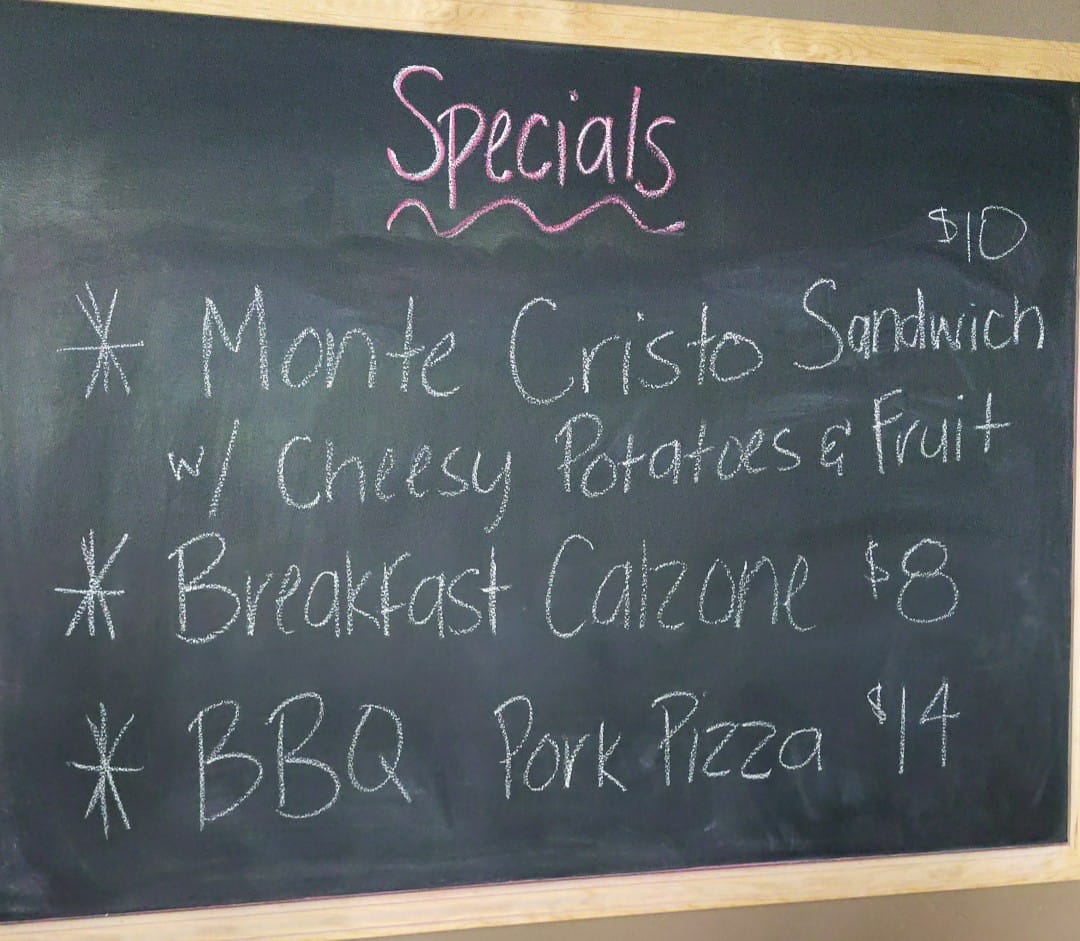 Specials
$10
* Monte Cristo Sandwich
w/ Cheesy Potatoes & Fruit
* Breakfast Calzone $8
* BBQ Pork Pizza $14